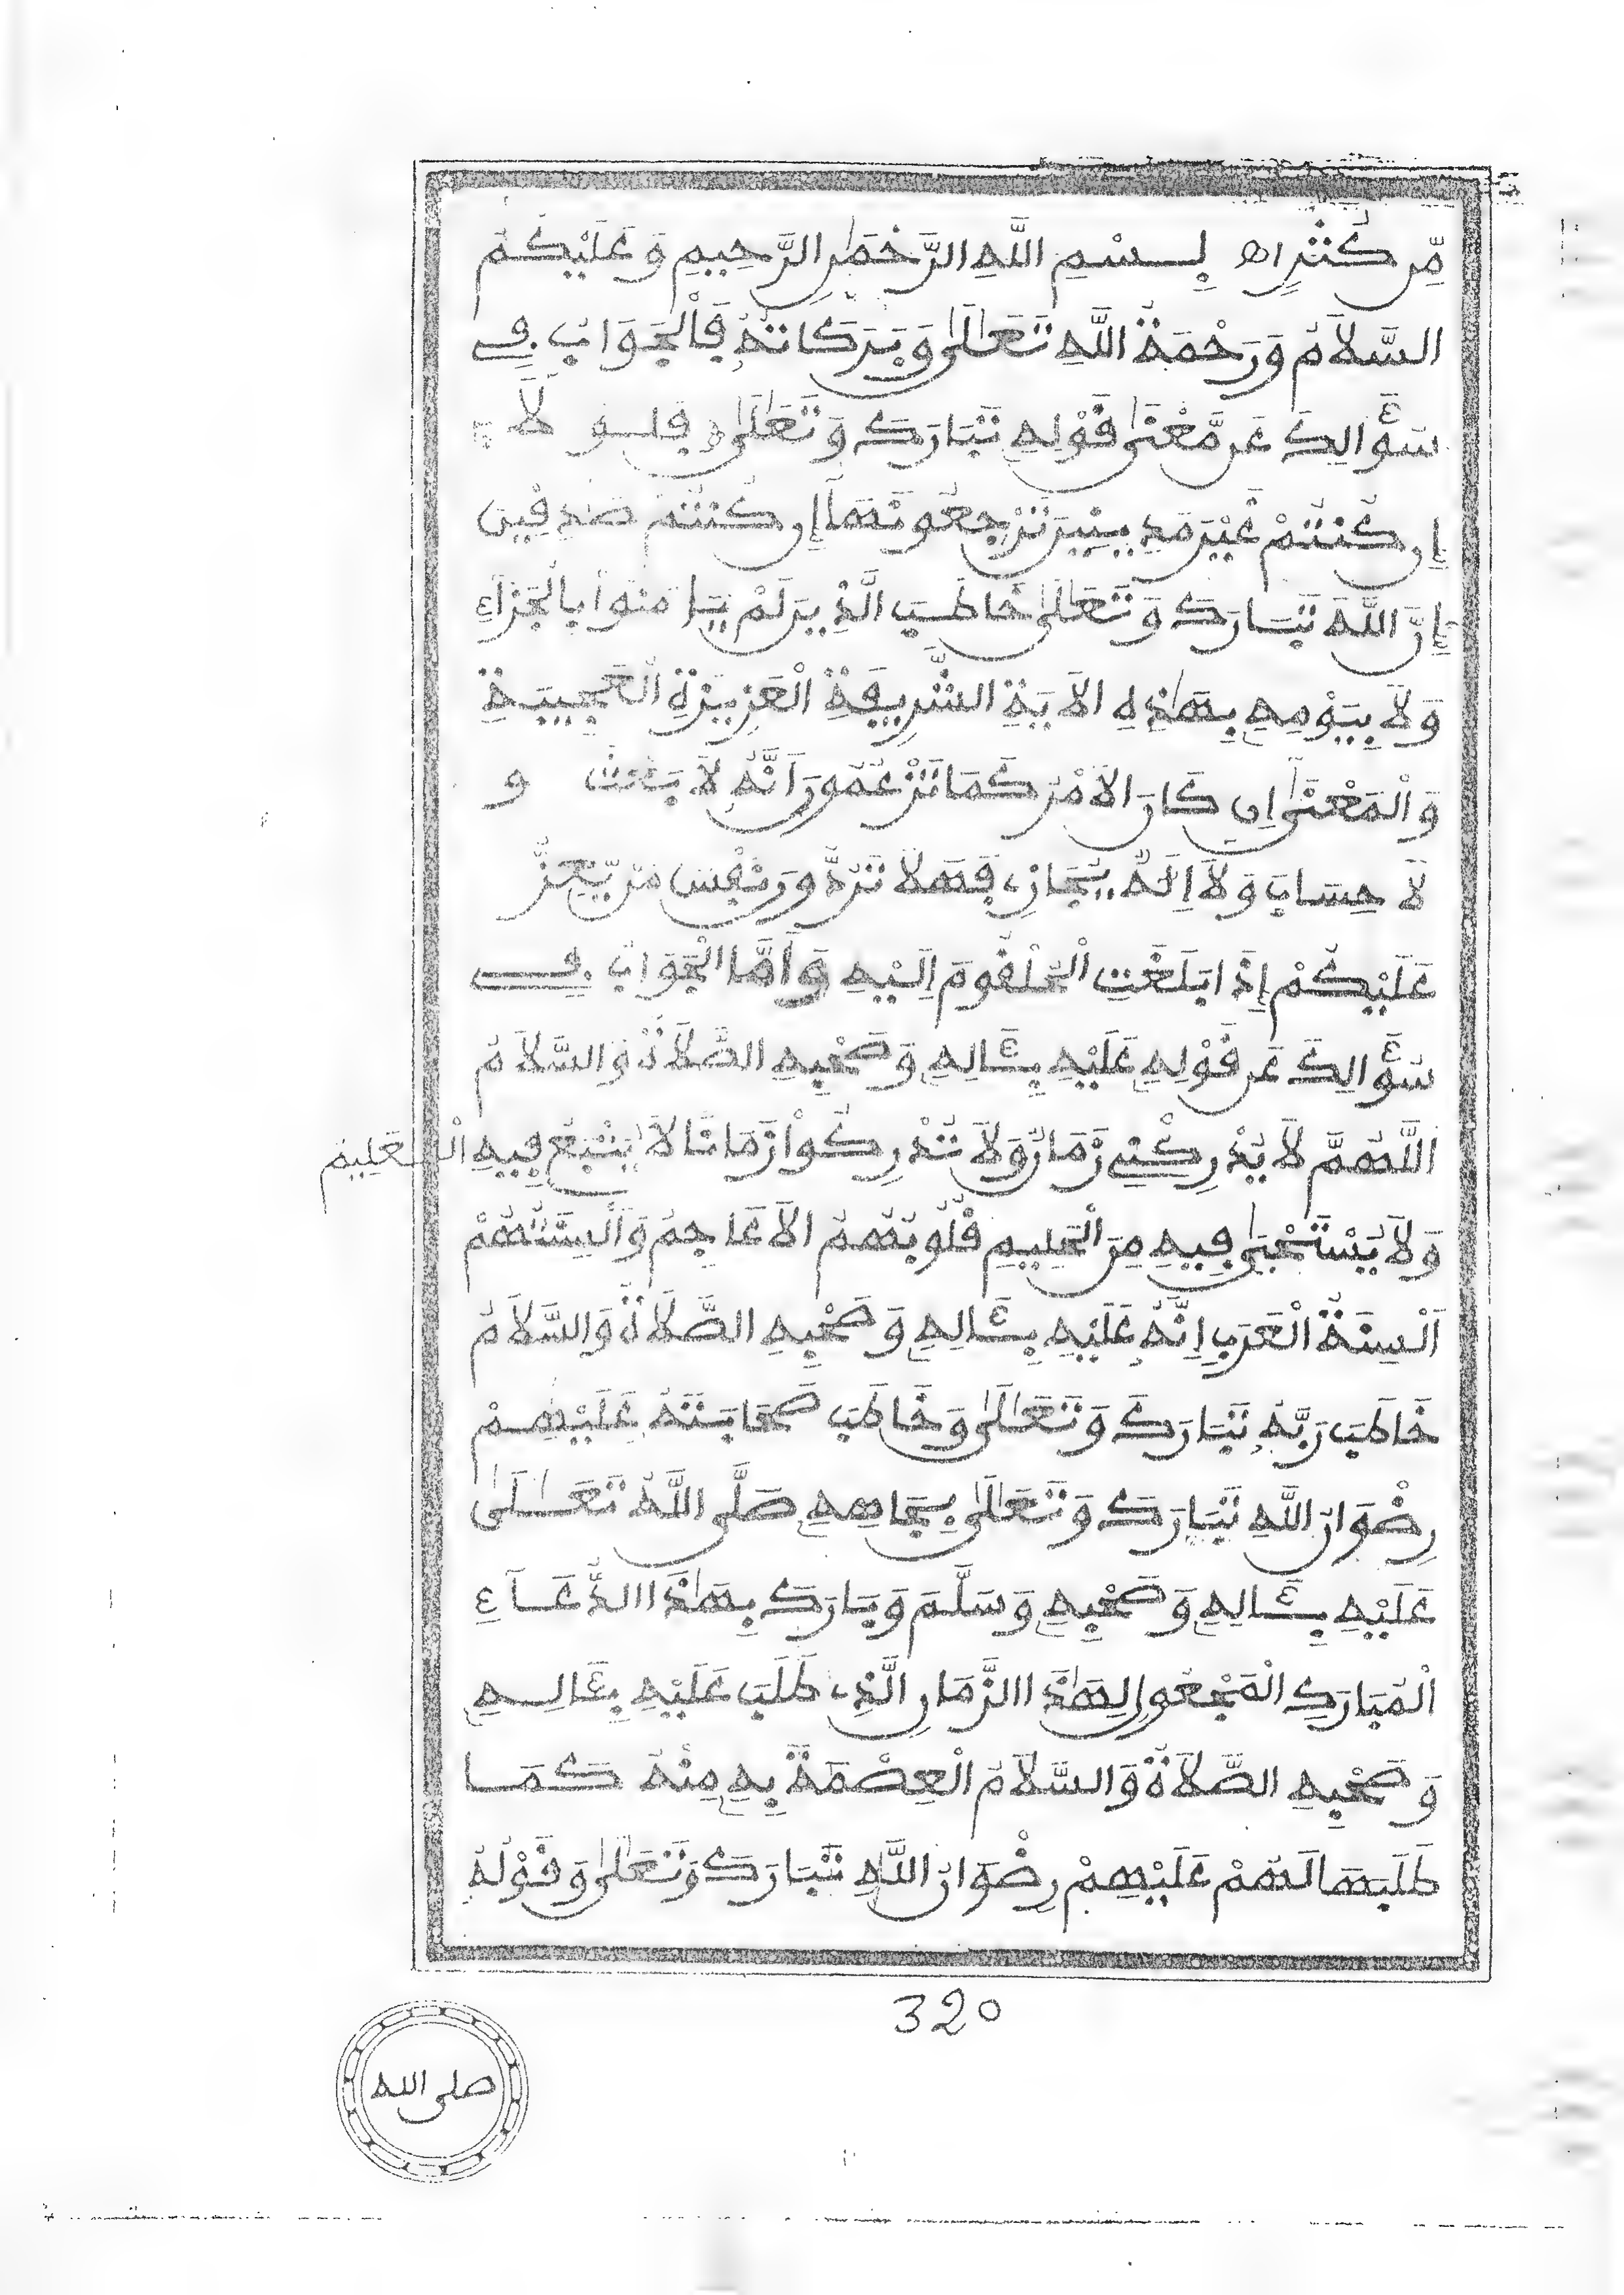 مِّن كَنْثْرِ اهـ بِسْمِ اللَّهِ الرَّحْمَٰنِ الرَّحِيمِ وَعَلَيْكُمُ
السَّلَامُ وَرَحْمَةُ اللَّهِ تَعَالَىٰ وَبَرَكَاتُهُ فَالْجَوَابُ فِي
سُؤَالِكَ عَن مَّعْنَىٰ قَوْلِهِ تَبَارَكَ وَتَعَالَىٰ فلو لَا
إِن كُنتُمْ غَيْرَ مَدِينِينَ تَرْجِعُونَهَا إِن كُنتُمْ صَٰدِقِينَ
إِنَّ اللَّهَ تَبَارَكَ وَتَعَالَىٰ خَاطَبَ الَّذِينَ لَمْ يُؤْمِنُوا بِالْجَزَاءِ
وَلَا بِيَوْمِهِ بِهَٰذِهِ الآيَةِ الشَّرِيفَةِ الْعَزِيزَةِ الْعَجِيبَةِ
وَالْمَعْنَىٰ إِن كَانَ الأَمْرُ كَمَا تَزْعُمُونَ أَنَّهُ لَا بَعْثَ و
لَا حِسَابَ وَلَا إِلَٰهَ يُجَازِي فَهَلَّا تَرُدُّونَ نَفْسَ مَن يَّعِزُّ
عَلَيْكُمْ إِذَا بَلَغَتِ الْحُلْقُومَ إِلَيْهِ وَأَمَّا الْجَوَابُ فِي
سُؤَالِكَ عَن قَوْلِهِ عَلَيْهِ بِـَٔالِهِ وَصَحْبِهِ الصَّلَاةُ وَالسَّلَامُ
اللَّهُمَّ لَا يُدْرِكْنِي زَمَانٌ وَلَا تُدْرِكُوا زَمَانًا لَا يُتْبَعُ فِيهِ الْعَلِيمُ
وَلَا يُسْتَحْيَىٰ فِيهِ مِنَ الْحَلِيمِ قُلُوبُهُمُ الأَعَاجِمُ وَأَلْسِنَتُهُمْ
أَلْسِنَةُ الْعَرَبِ إِنَّهُ عَلَيْهِ بِـَٔالِهِ وَصَحْبِهِ الصَّلَاةُ وَالسَّلَامُ
خَاطَبَ رَبَّهُ تَبَارَكَ وَتَعَالَىٰ وَخَاطَبَ صَحَابَتَهُ عَلَيْهِمْ
رِضْوَانُ اللَّهِ تَبَارَكَ وَتَعَالَىٰ بِجَاهِهِ صَلَّى اللَّهُ تَعَالَىٰ
عَلَيْهِ بِـَٔالِهِ وَصَحْبِهِ وَسَلَّمَ وَبَارَكَ بِهَٰذَا الدُّعَاءِ
الْمُبَارَكِ الْمَجْعُولِ لِهَٰذَا الزَّمَانِ الَّذِي طَلَبَ عَلَيْهِ بِـَٔالِهِ
وَصَحْبِهِ الصَّلَاةُ وَالسَّلَامُ الْعِصْمَةَ بِهِ مِنْهُ كَمَا
طَلَبَهَا لَهُمْ عَلَيْهِمْ رِضْوَانُ اللَّهِ تَبَارَكَ وَتَعَالَىٰ وَقَوْلُهُ
320
صلى الله